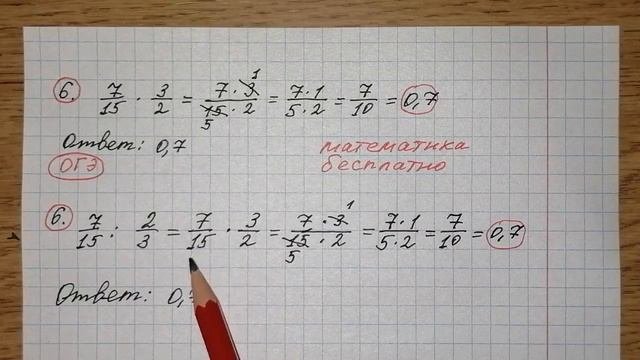 6. 7/15 · 3/2 = 7·3/15·2 = 7·1/5·2 = 7/10 = 0,7
1
5
Ответ: 0,7
ОГЭ
математика
бесплатно
6. 7/15 : 2/3 = 7/15 · 3/2 = 7·3/15·2 = 7·1/5·2 = 7/10 = 0,7
1
5
Ответ: 0,